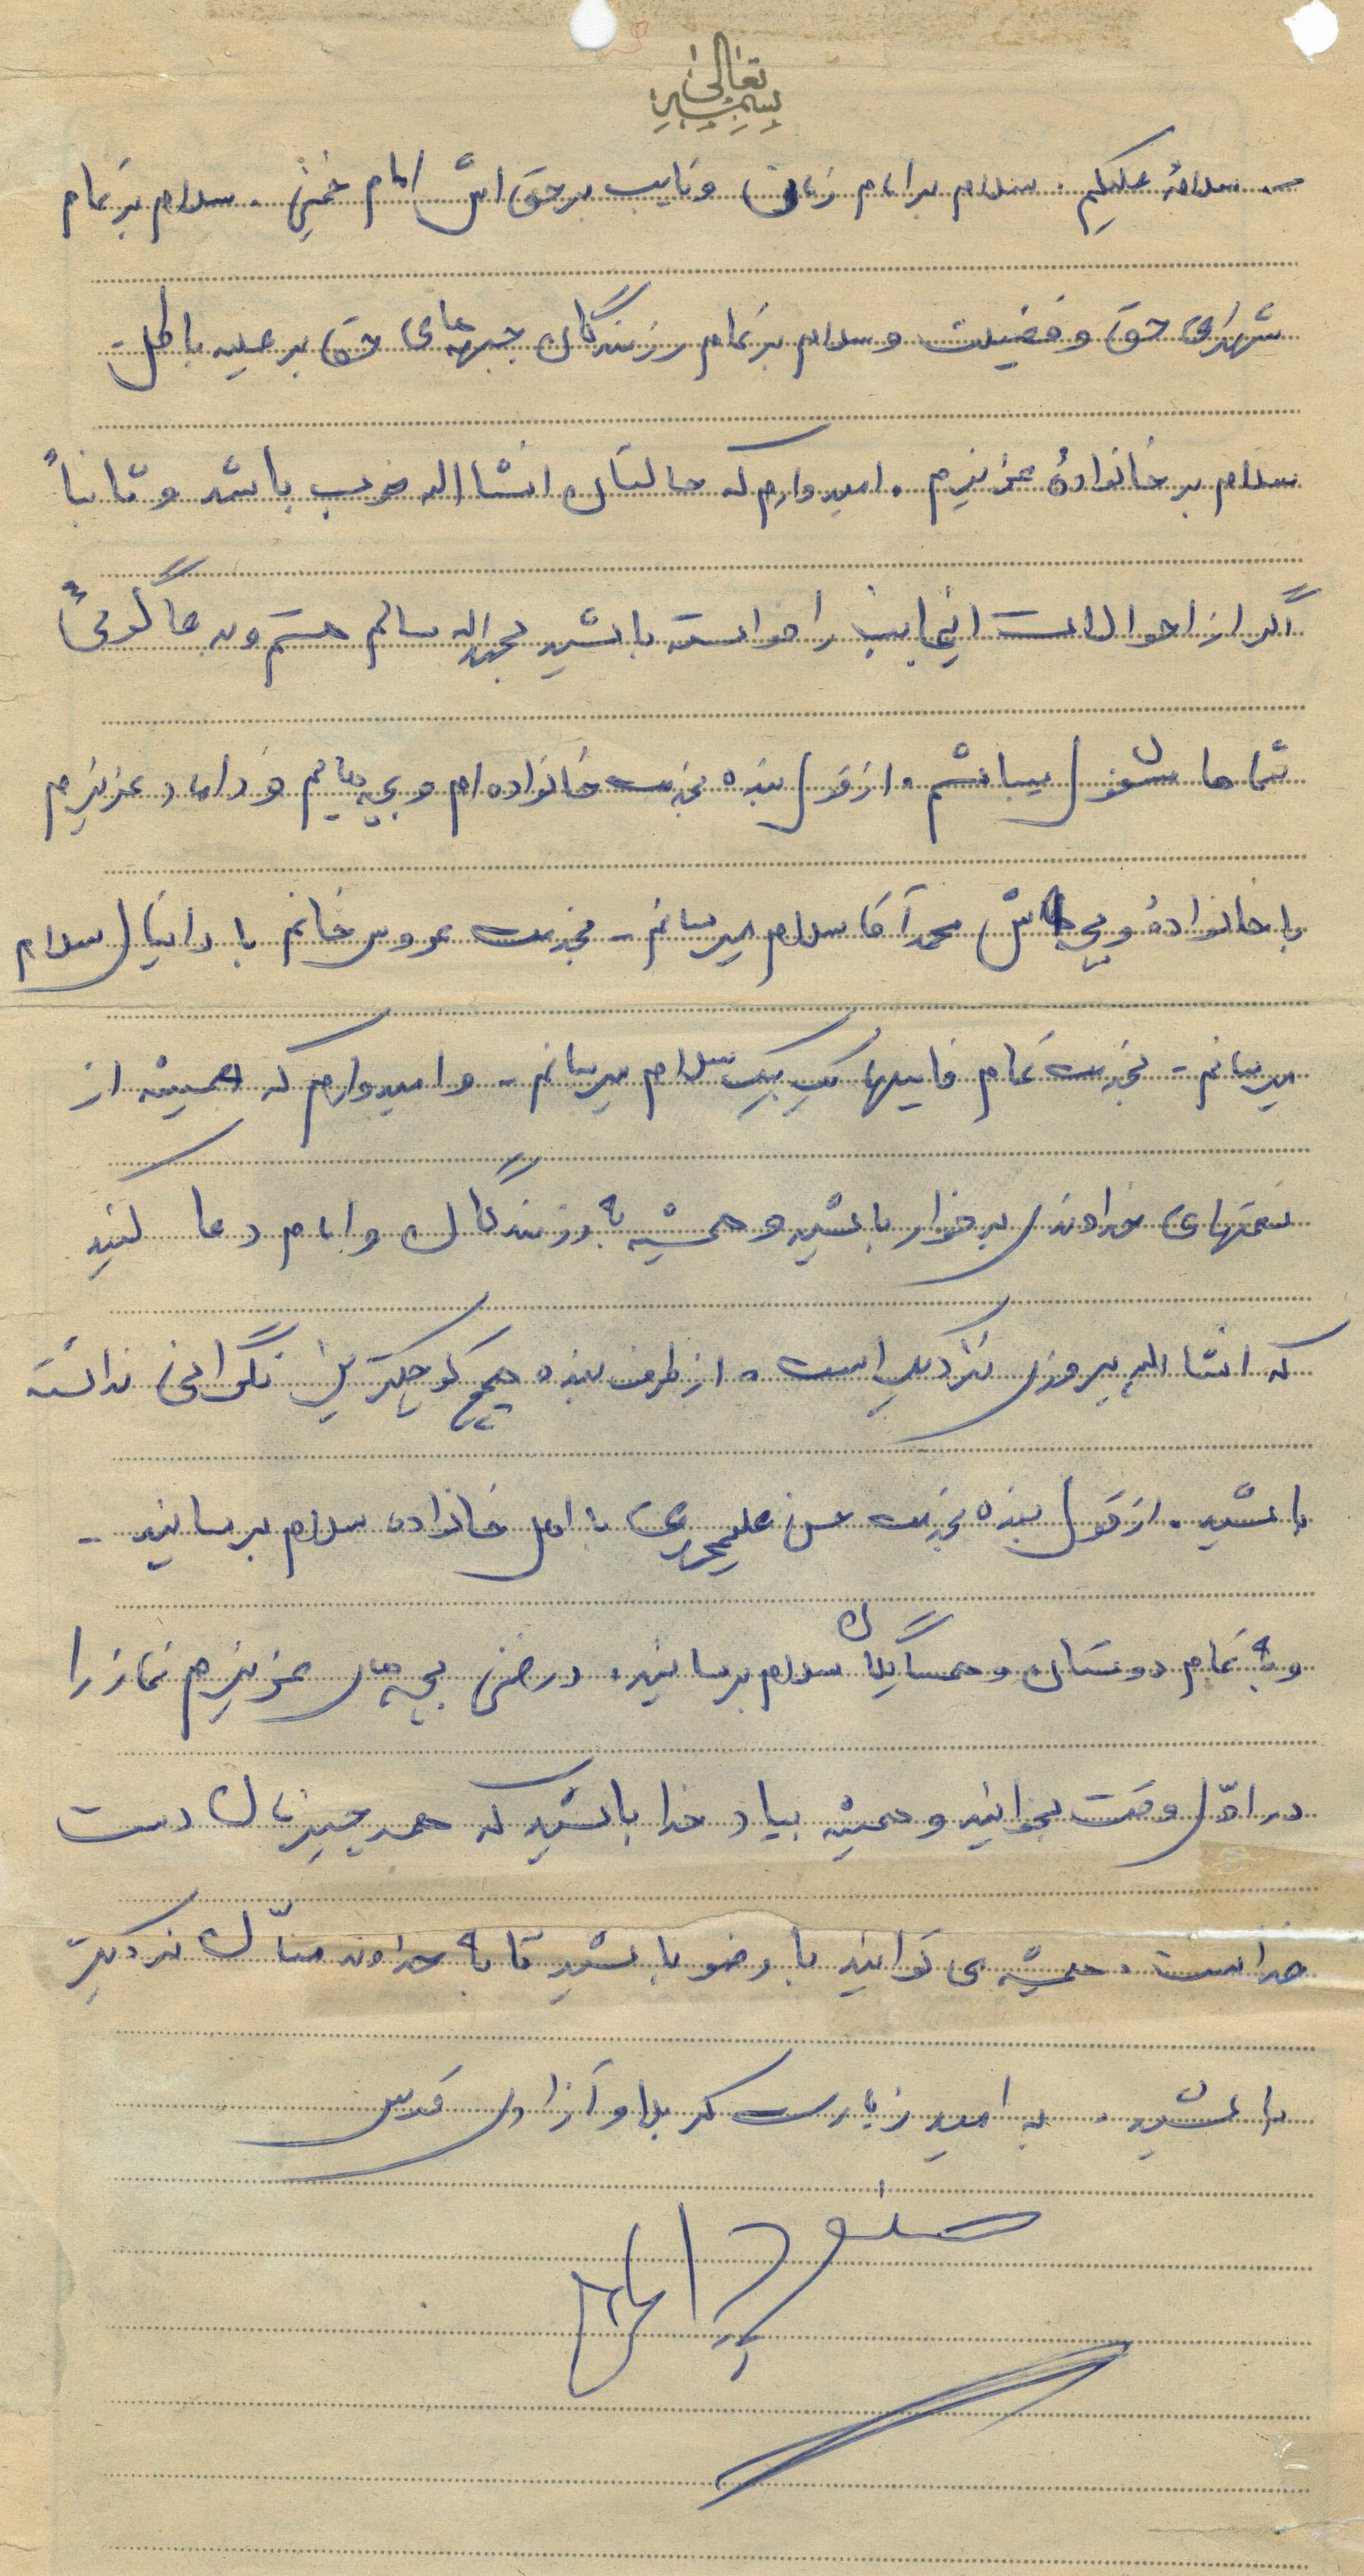 بسمه تعالی
سلامٌ علیکم. سلام بر امام زمان و نایب بر حق اش امام خمینی. سلام بر تمام
شهدای حق و فضیلت و سلام بر تمام رزمندگان جبهه های حق بر علیه باطل -
سلام بر خانوادهٔ عزیزم. امیدوارم که حالتان انشااله خوب باشد و ثانیاً
اگر از احوالات اینجانب را خواسته باشید بحمداله سالم هستم و به دعا گوئی
شماها مشغول میباشم. از قول بنده بخدمت خانواده ام و بچه هایم و داماد عزیزم
با خانوادهٔ و بچه هاش محمد آقا سلام میرسانم - بخدمت عروس خانم با دانیال سلام
میرسانم - بخدمت تمام فامیلها یک بیک سلام میرسانم - و امیدوارم که همیشه از
نعمتهای خداوندی برخوار باشید و همیشه به رزمندگان و امام دعا کنید
که انشا الله پیروزی نزدیک است. از طرف بنده هیچ کوچکترین نگرانی نداشته
باشید. از قول بنده بخدمت حسن علیمحمدی با اهل خانواده سلام برسانید -
و به تمام دوستان و همسایگان سلام برسانید. در ضمن بچه های عزیزم نماز را
در اوّل وقت بخوانید و همیشه بیاد خدا باشید که همه چیزمان دست
خداست. همیشه می توانید با وضو باشید تا به خداوند منّان نزدیکتر
باشید. به امید زیارت کربلا و آزادی قدس